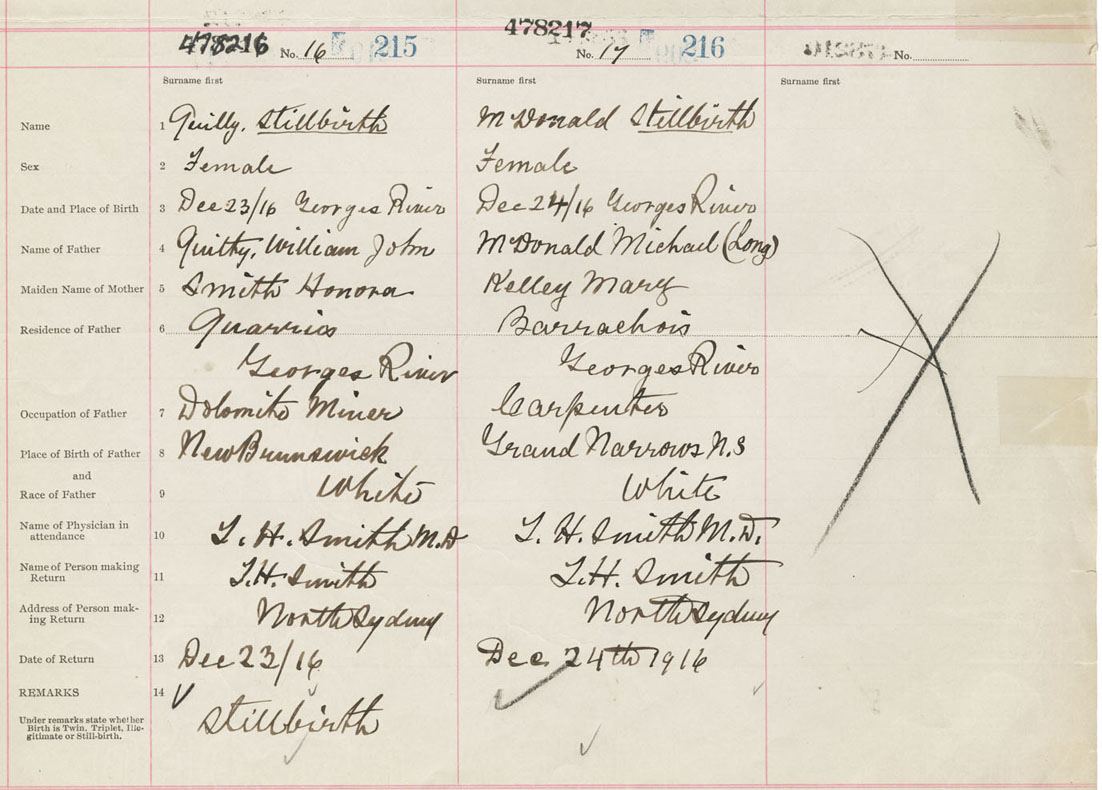 478216 No. 16 215
478217 No. 17 216
No.
Surname first
Surname first
Surname first
Name 1 Quilly. Stillbirth McDonald Stillbirth
Sex 2 Female Female
Date and Place of Birth 3 Dec 23/16 Georges River Dec 24/16 Georges River
Name of Father 4 William John McDonald Michael (Long)
Maiden Name of Mother 5 Smith Honora Kelley Mary
Residence of Father 6 Quarries Barrachois
Georges River Georges River
Occupation of Father 7 Dolomite Miner Carpenter
Place of Birth of Father 8 New Brunswick Grand Narrows N.S
and
Race of Father 9 White White
Name of Physician in
attendance 10 L. H. Smith M.D L. H. Smith M.D.
Name of Person making
Return 11 L.H. Smith L.H. Smith
Address of Person mak-
ing Return 12 North Sydney North Sydney
Date of Return 13 Dec 23/16 Dec 24th 1916
REMARKS 14
Under remarks state whether
Birth is Twin, Triplet, Ille-
gitimate or Still-birth.
Stillbirth